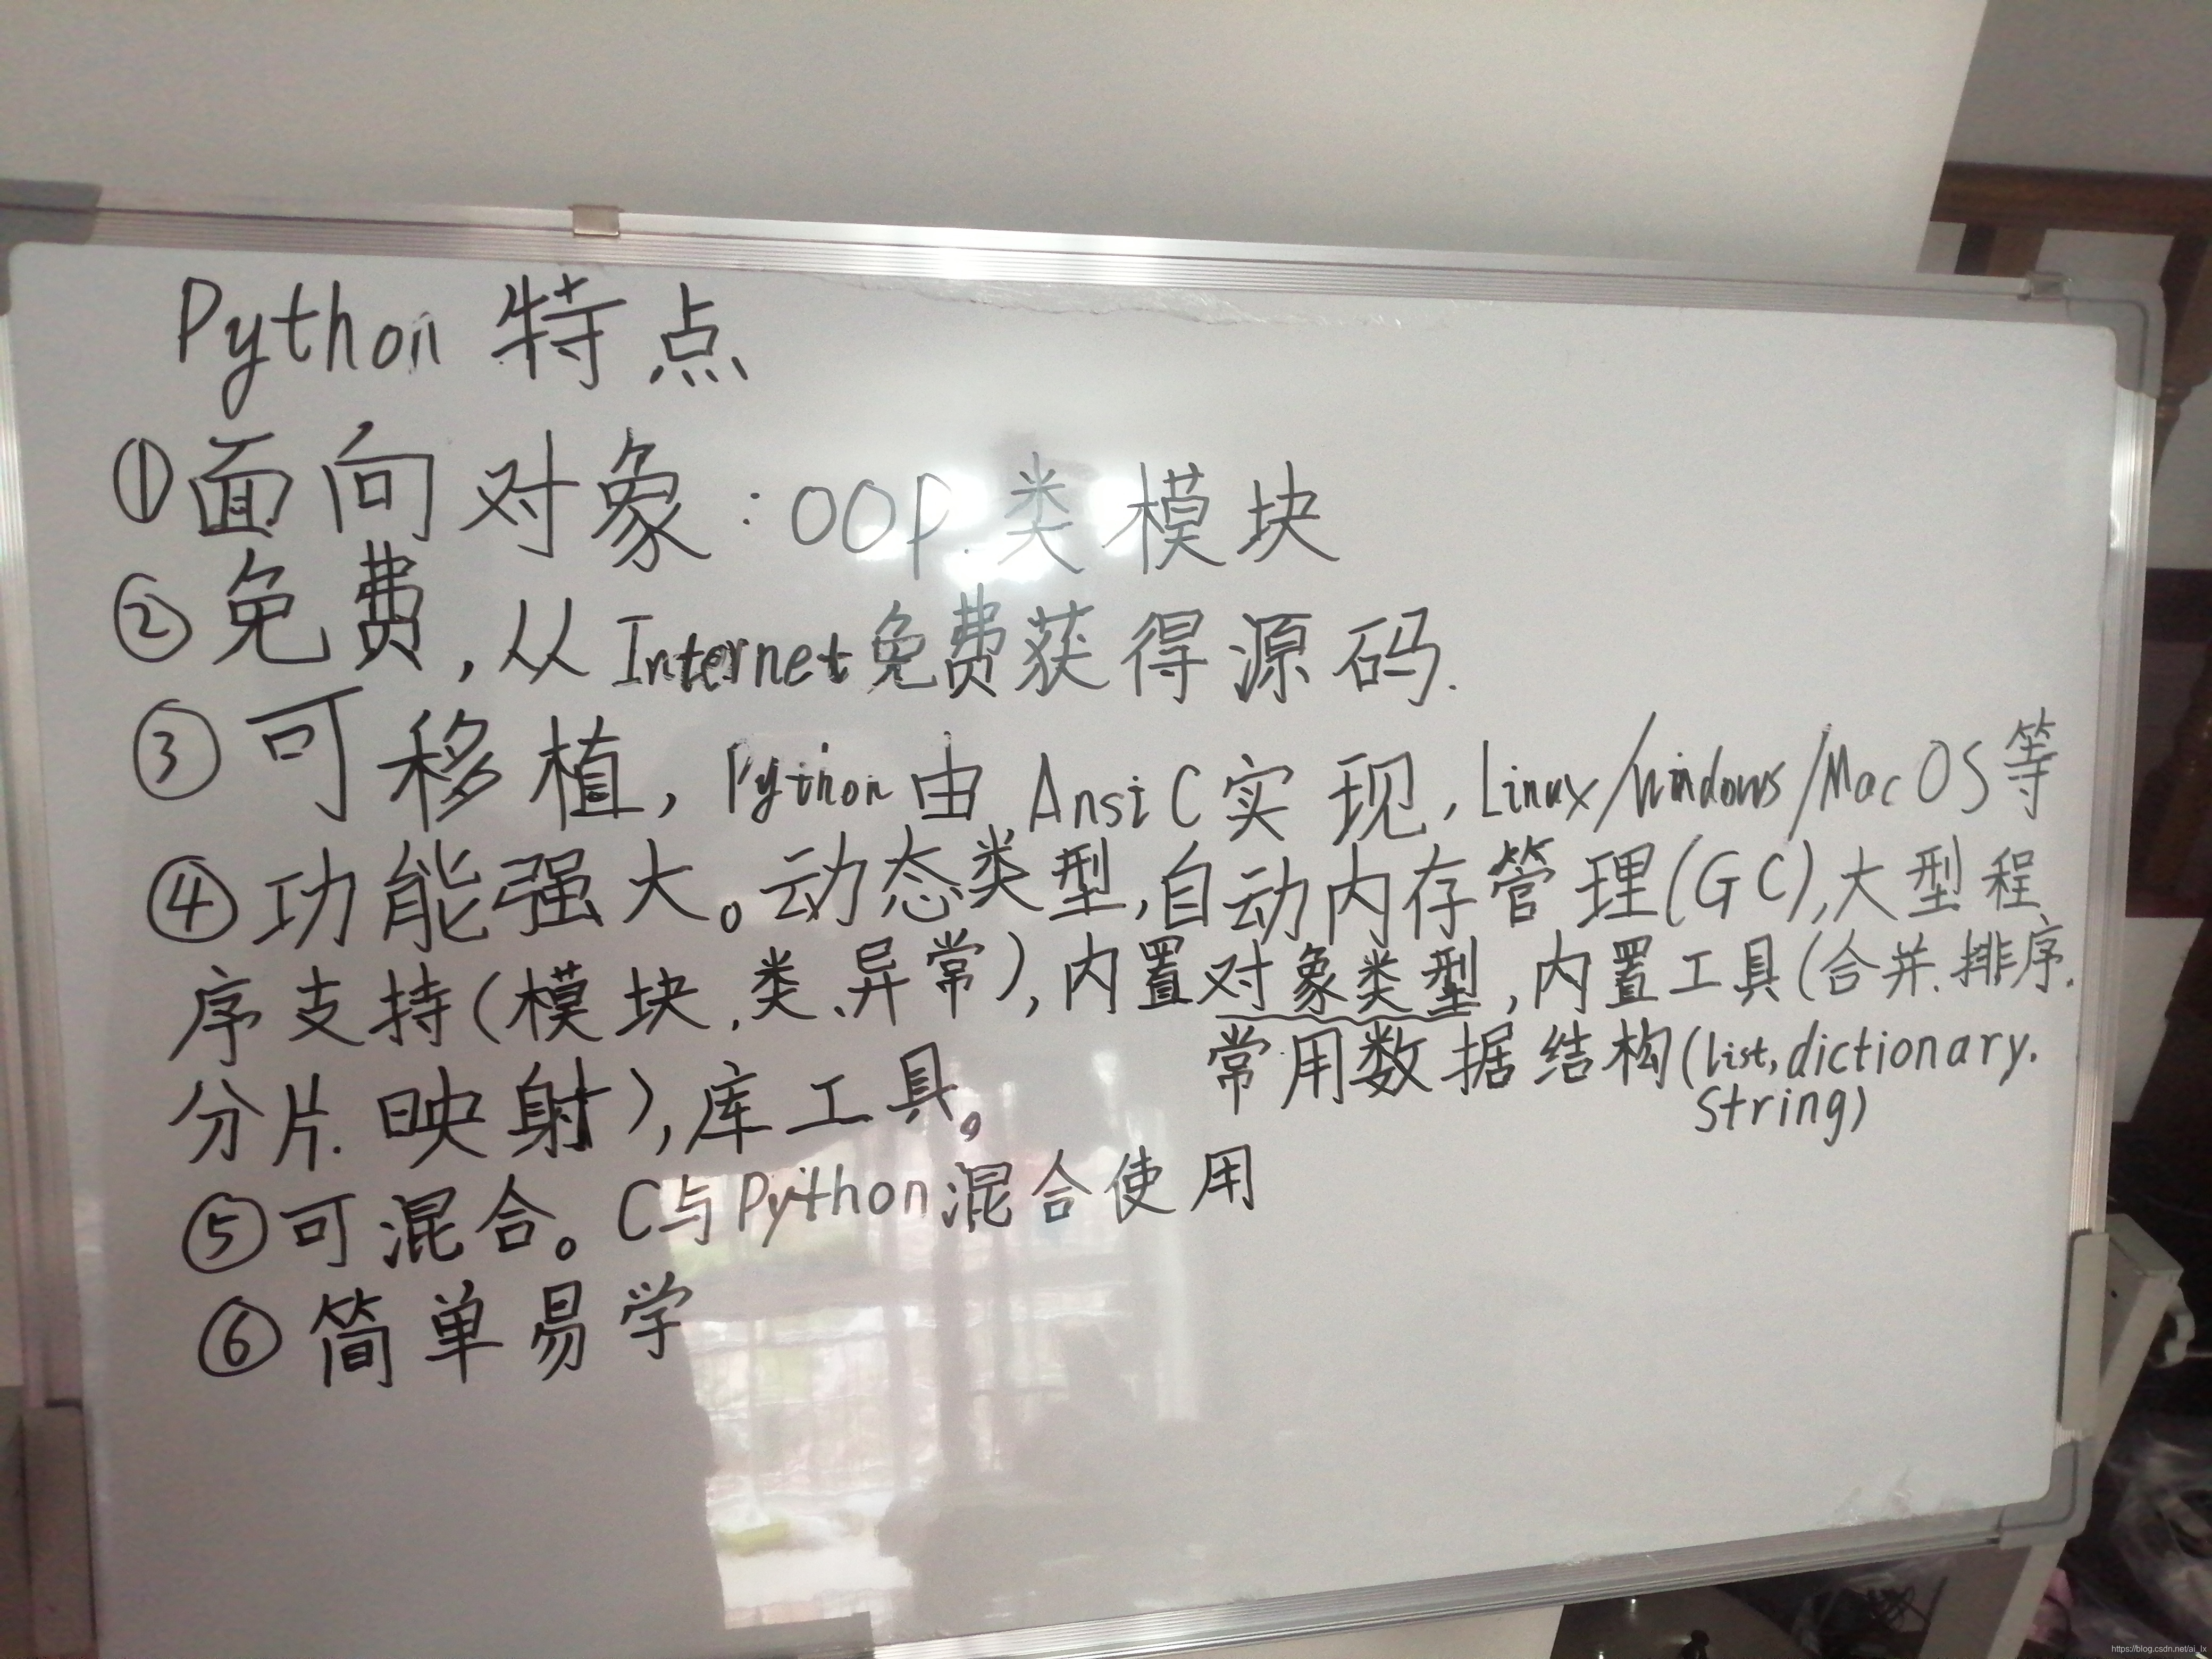 Python 特点
①面向对象：OOP.类 模块
②免费,从Internet免费获得源码.
③可移植,Python由AnsiC实现,Linux/Windows/MacOS等
④功能强大。动态类型,自动内存管理(GC),大型程
序支持(模块.类.异常),内置对象类型,内置工具(合并.排序.
常用数据结构(list,dictionary.
String)
分片.映射),库工具。
⑤可混合。C与Python混合使用
⑥简单易学
https://blog.csdn.net/ai_lx